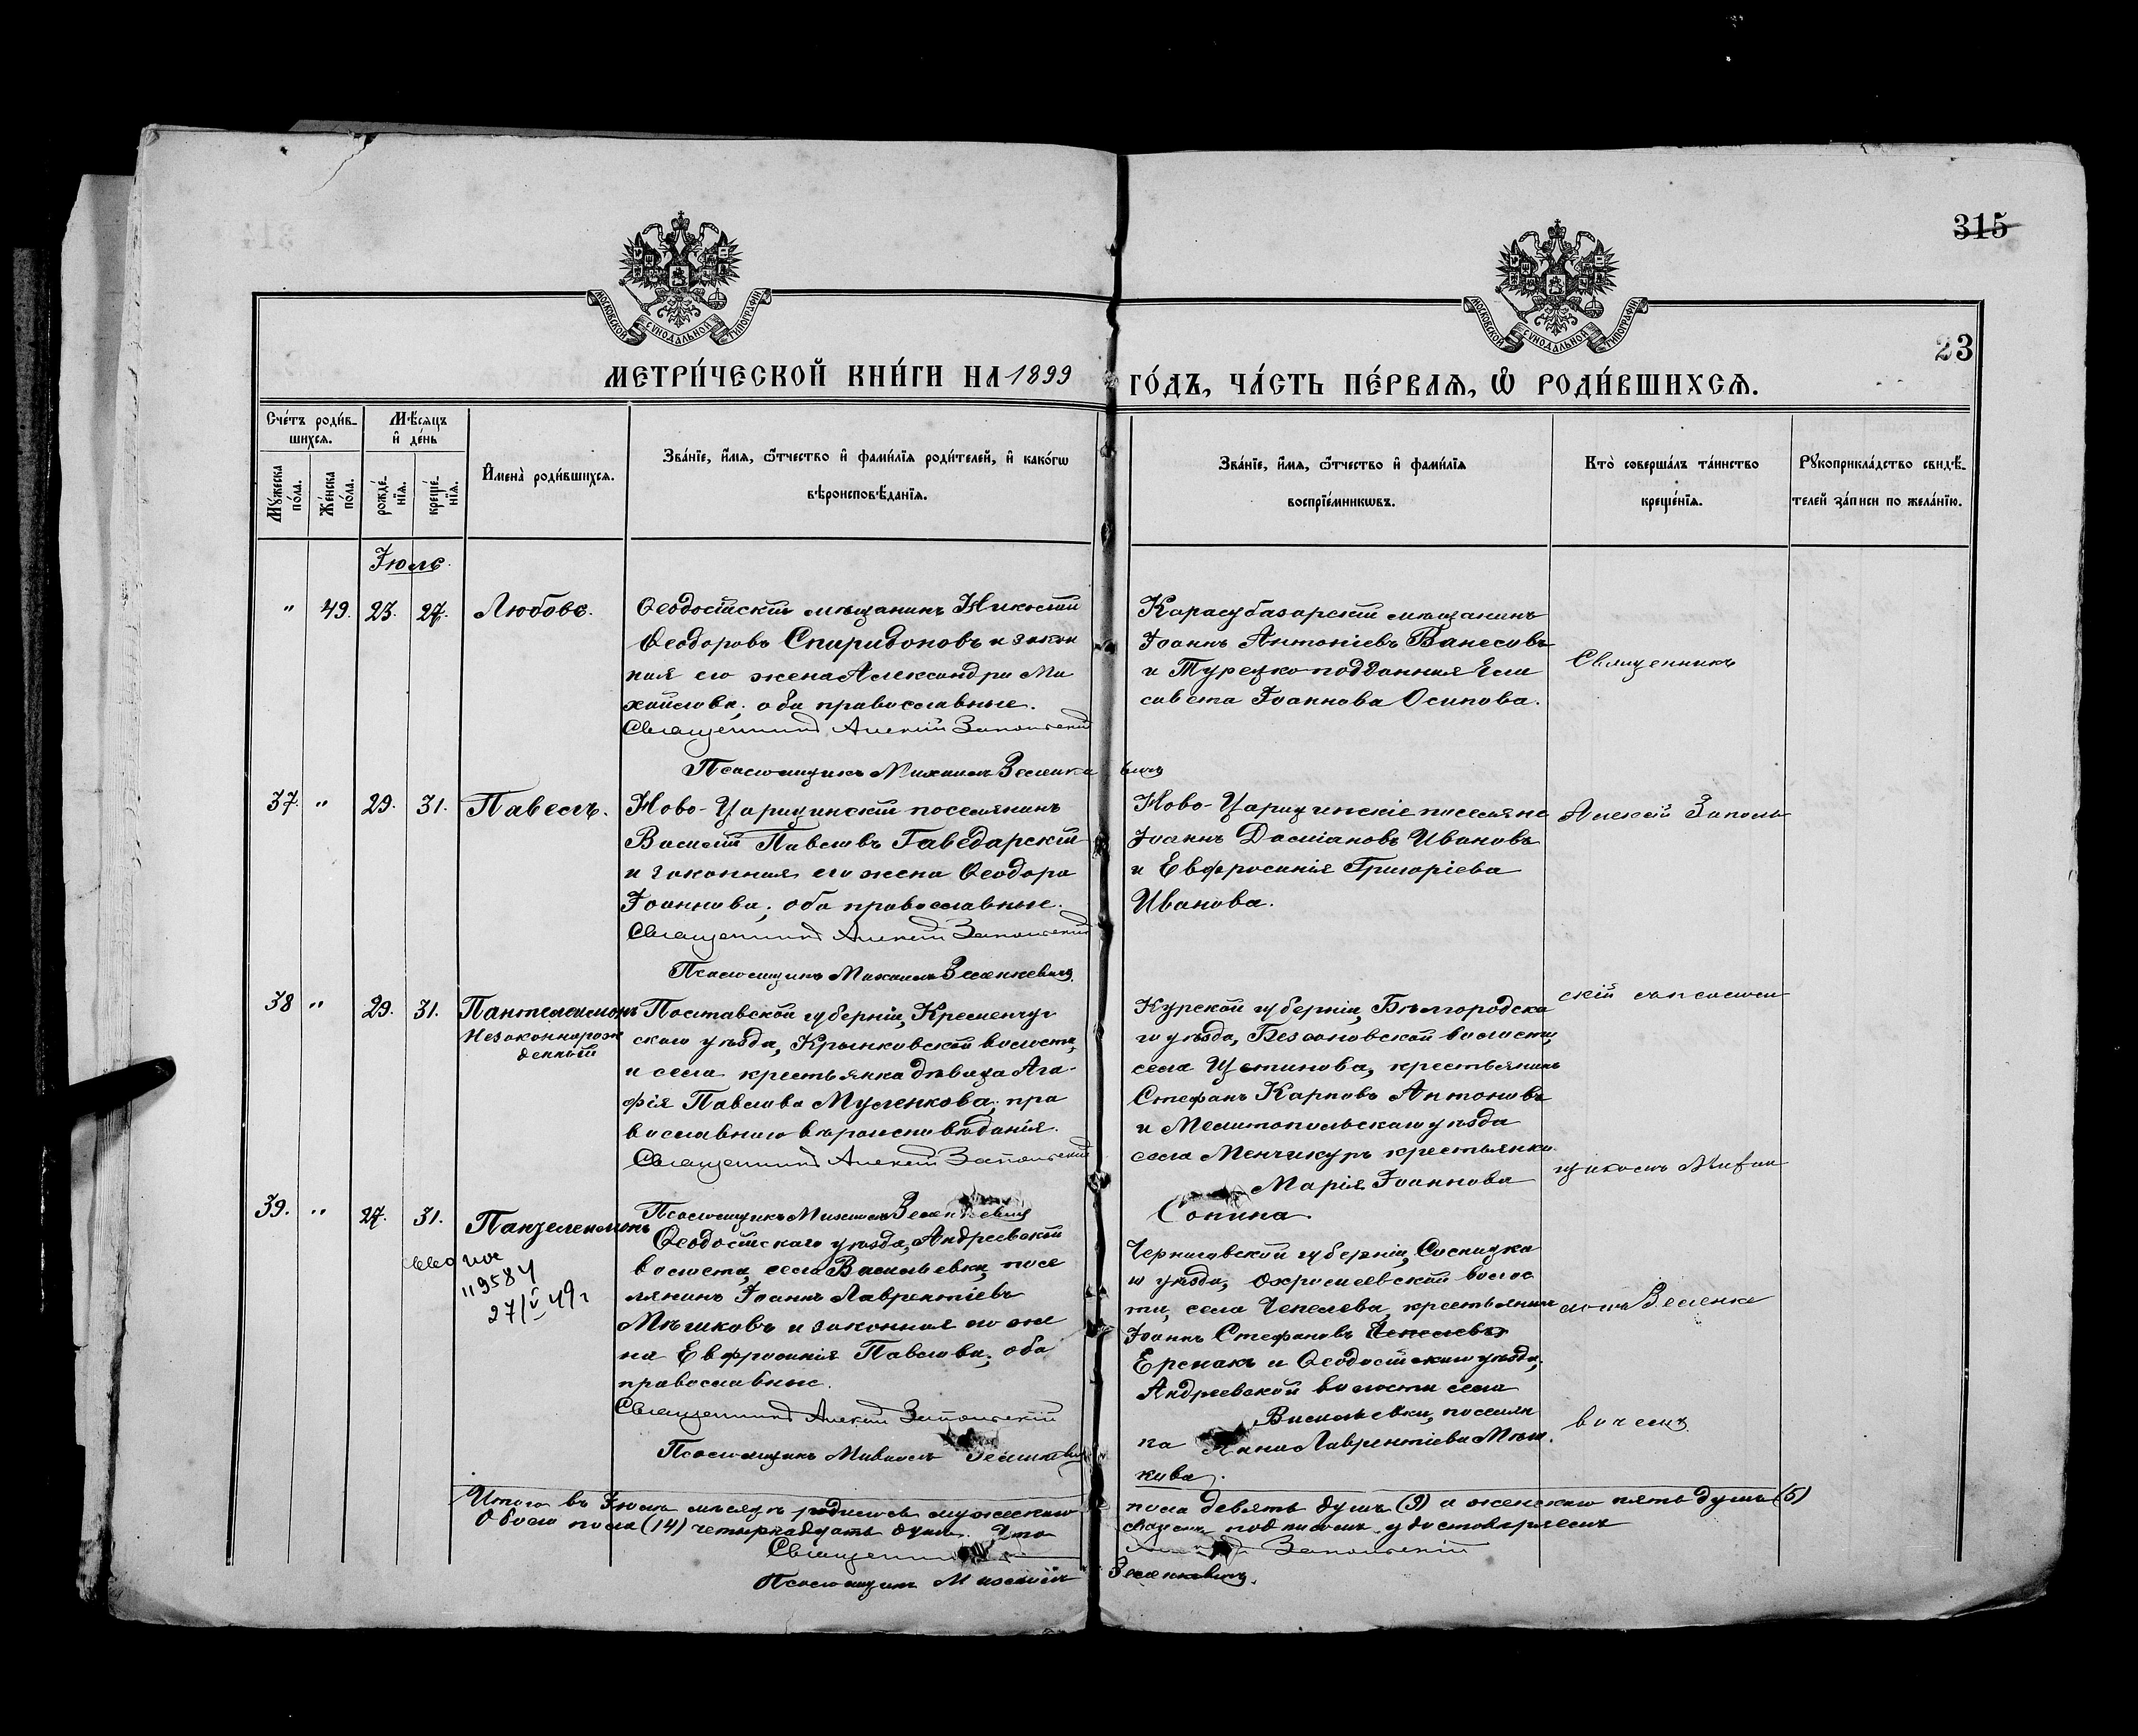 315
МОСКОВСКОЙ СѴНОДАЛЬНОЙ ТИПОГРАФІИ
МОСКОВСКОЙ СѴНОДАЛЬНОЙ ТИПОГРАФІИ
23
МЕТРИ́ЧЕСКОЙ КНИ́ГИ НА 1899 ГО́ДЪ, ЧА́СТЬ ПЕ́РВАѦ, Ѡ҆ РОДИ́ВШИХСѦ.
Сче́тъ роди́в-
шихсѧ.
Мѣ́сѧцъ
и҆ де́нь
Мꙋ́жеска
по́ла.
Же́нска
по́ла.
рожде́-
нїѧ.
креще́-
нїѧ.
И҆мена̀ роди́вшихсѧ.
Зва́нїе, и҆́мѧ, ѻ҆́тчество и҆ фами́лїѧ роди́телей, и҆ како́гѡ
вѣроисповѣ́данїѧ.
Зва́нїе, и҆́мѧ, ѻ҆́тчество и҆ фами́лїѧ
воспрїе́мникѡвъ.
Кто̀ соверша́лъ та́инство
креще́нїѧ.
Рꙋкоприкла́дство свидѣ́-
телей за́писи по жела́нїю.
Іюль.
" 49. 23. 27. Любовь.
Ѳеодосійскій мѣщанинъ Николай
Ѳеодоровъ Спиридоновъ и закон
ная его жена Александра Ми
хайлова; оба православные.
Священникъ Алексій Запольскій
Псаломщикъ Михаилъ Зеленкевичъ
Карасубазарскій мѣщанинъ
Іоаннъ Антоніевъ Ванесовъ
и Турецко-подданная Ели
савета Іоаннова Осипова.
Священникъ
37. " 29. 31. Павелъ.
Ново-Царицинскій поселянинъ
Василій Павловъ Гаведарскій
и законная его жена Ѳеодора
Іоаннова; оба православные.
Священникъ Алексій Запольскій
Псаломщикъ Михаилъ Зеленкевичъ.
Ново-Царицинскіе поселяне
Іоаннъ Даміановъ Ивановъ
и Евфросинія Григоріева
Иванова.
Алексій Заполь
38 " 29. 31. Пантелеимонъ
Незаконнорож
денный
Полтавской губерніи, Кременчуг
скаго уѣзда, Крынковской волости,
и села крестьянка дѣвица Ага-
фія Павлова Мусленкова; пра
вославнаго вѣроисповѣданія.
Священникъ Алексій Запольскій
Псаломщикъ Михаилъ Зеленкевичъ
Курской губерніи, Бѣлгородска
го уѣзда, Безсоновской волости,
села Устинова, крестьянинъ
Стефанъ Карповъ Антоновъ
и Мелитопольскаго уѣзда
села Менчикуръ крестьянка
Марія Іоаннова
Сопина.
скій съ псалом
щикомъ Миха
39. " 27. 31. Пантелеимонъ
119584
27/V 49 г
Ѳеодосійскаго уѣзда, Андреевской
волости, села Васильевки, посе
лянинъ Іоаннъ Лаврентіевъ
Мѣшковъ и законная его же
на Евфросинія Павлова; оба
православные.
Священникъ Алексій Запольскій
Псаломщикъ Михаилъ Зеленкевичъ
Черниговской губерніи, Сосницка
го уѣзда, Охрамеевской волос
ти, села Чепелева, крестьянинъ
Іоаннъ Стефановъ Чепелевъ
Ермакъ и Ѳеодосійскаго уѣзда,
Андреевской волости села
Васильевки, поселян
ка Анна Лаврентіева Мѣш
кова.
иломъ Зеленке
вичемъ
Итого въ Іюлѣ мѣсяцѣ родилось мужескаго пола девять душъ (9) а женскаго пять душъ (5)
Обоего пола (14) четырнадцать душъ. Что своимъ подписомъ удостовѣряемъ
Священникъ Алексій Запольскій
Псаломщикъ Михаилъ Зеленкевичъ.